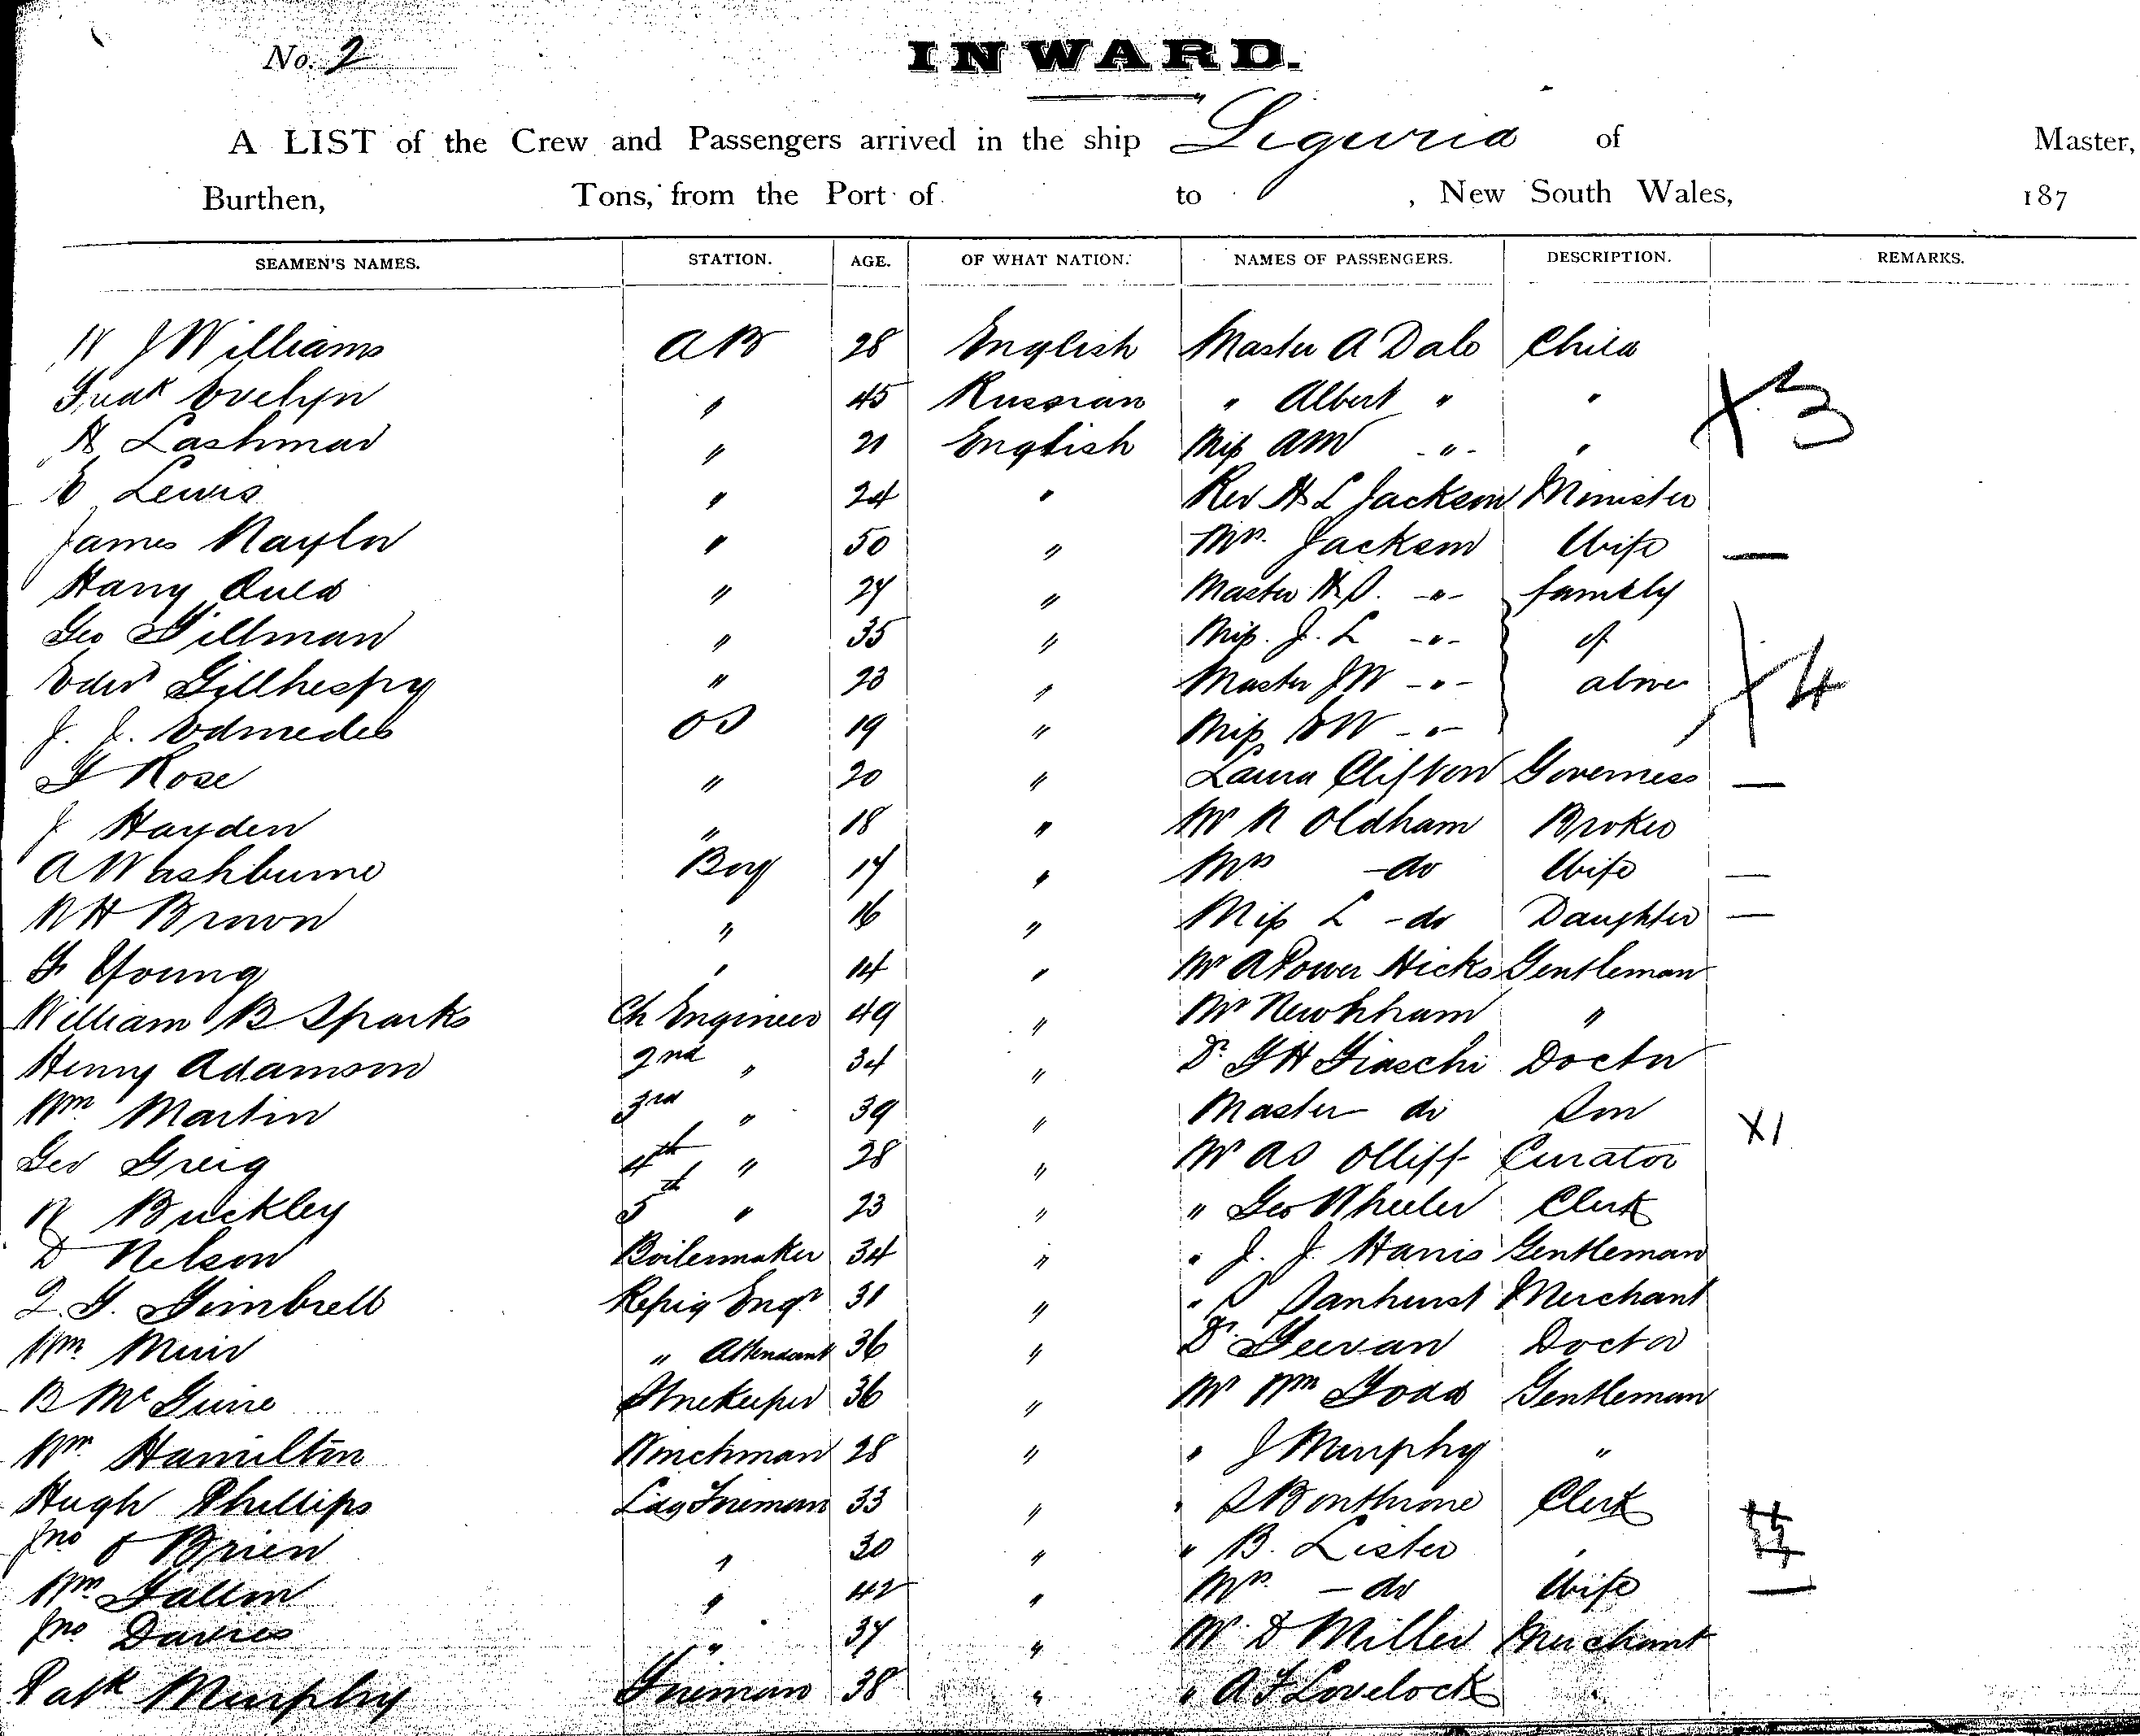 No. 2
INWARD.
A LIST of the Crew and Passengers arrived in the ship Liguria of Master,
Burthen, Tons, from the Port of to , New South Wales, 187
SEAMEN'S NAMES. STATION. AGE. OF WHAT NATION. NAMES OF PASSENGERS. DESCRIPTION. REMARKS.
W J Williams AB 28 English Master A Dale Child
Evelyn " 45 Russian " Albert " " X3
H Lashmar " 21 English Miss AM -"- "
E Lewis " 24 " Rev H L Jackson Minister
James Naylor " 50 " Mrs. Jackson Wife —
Harry Auld " 27 " Master -"- family
Geo Tillman " 35 " Miss. J. L -"- of
Edwd Gillhespy " 23 " Master JW -"- above X4
J. J. Edmedes OS 19 " Miss EW -"-
T Rose " 20 " Laura Clifton Governess —
J Hayden " 18 " Mr R Oldham Broker
A Washburne Boy 17 " Mrs -do Wife —
W H Brown " 16 " Miss L -do Daughter —
F Young " 14 " Mr A Power Hicks Gentleman
William B Sparks Ch Engineer 49 " Mr Newnham "
Henry Adamson 2nd " 34 " Dr. Doctor
Wm Martin 3rd " 39 " Master do Son X1
Geo Greig 4th " 28 " Mr AS Olliff Curator
R Buckley 5th " 23 " " Geo Wheeler Clerk
D Nelson Boilermaker 34 " " J. J. Harris Gentleman
Gimbrell Refrig Engr 31 " " Merchant
Wm. Muir " Attendant 36 " Dr. Doctor
B McGuire Storekeeper 36 " Mr Wm Todd Gentleman
Wm. Hamilton Winchman 28 " " J Murphy "
Hugh Phillips Ldg Fireman 33 " " S Bonthrone Clerk
Jno O Brien " 30 " " B. Lister "
Wm Fallon " 42 " Mrs. -do Wife —
Jno Davies " 37 " Mr D Miller Merchant
Patk Murphy Fireman 38 " " A F Lovelock "